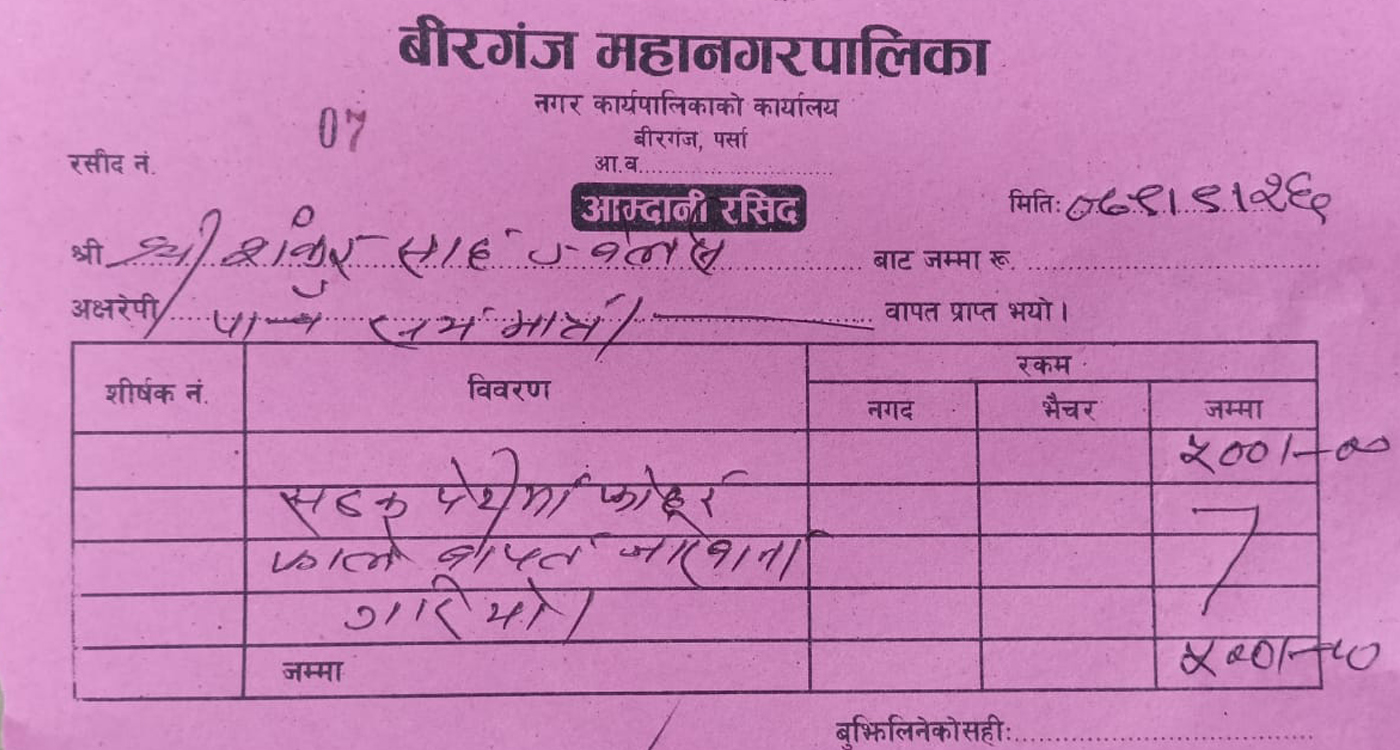 बीरगंज महानगरपालिका
नगर कार्यपालिकाको कार्यालय
बीरगंज, पर्सा
07
रसीद नं.
आ.व.
आम्दानी रसिद
मितिः ०७९।९।२६
श्री श्री शंकर साह ज्वेलर्स बाट जम्मा रू.
अक्षरेपी पाच सय मात्र। वापत प्राप्त भयो।
शीर्षक नं. विवरण रकम
नगद भैचर जम्मा
५००।-००
सडक पेटीमा फोहर
फाले बापत जरिवाना
गरियो।
जम्मा ५००।-००
बुझिलिनेकोसहीः